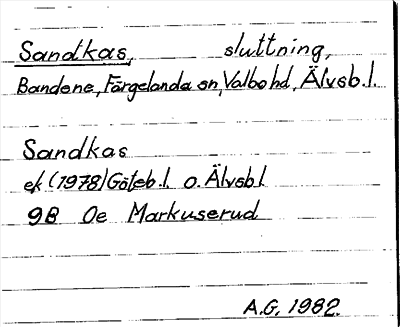 Sandkas, sluttning,
Bandene, Färgelanda sn, Valbo hd, Älvsb. l.
Sandkas
ek (1978) Göteb. l. o. Älvsb. l
9B 0e Markuserud
A.G. 1982.